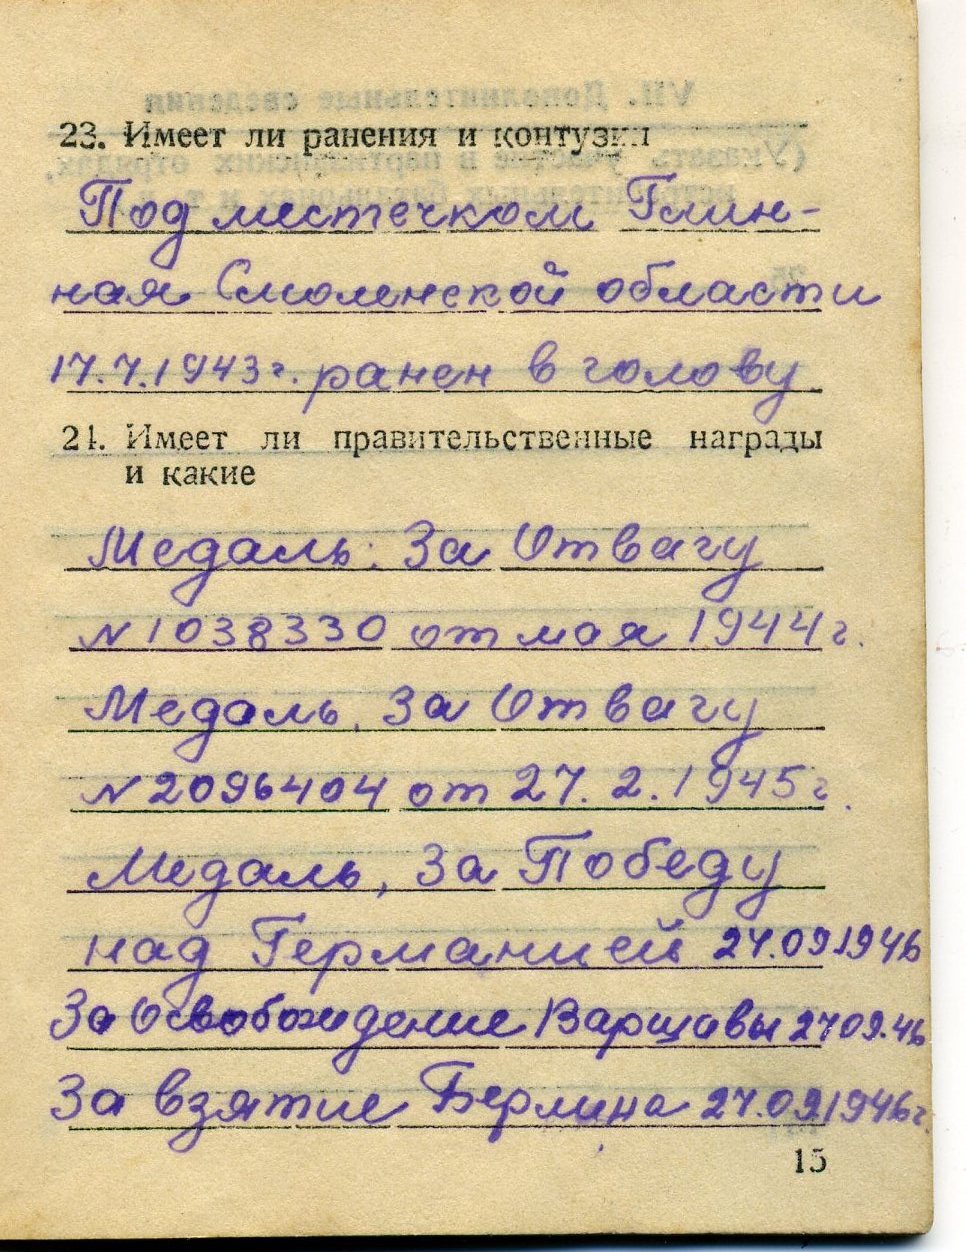 23. Имеет ли ранения и контузии
Под местечком Глин-
ная Смоленской области
17.7.1943 г. ранен в голову
24. Имеет ли правительственные награды
и какие
Медаль: За Отвагу
№1038330 от мая 1944 г.
Медаль, За Отвагу
№2096404 от 27.2.1945 г.
Медаль, За Победу
над Германией 27.09.1946
За Освобождение Варшавы 27 09.46
За взятие Берлина 27.09.1946 г.
15